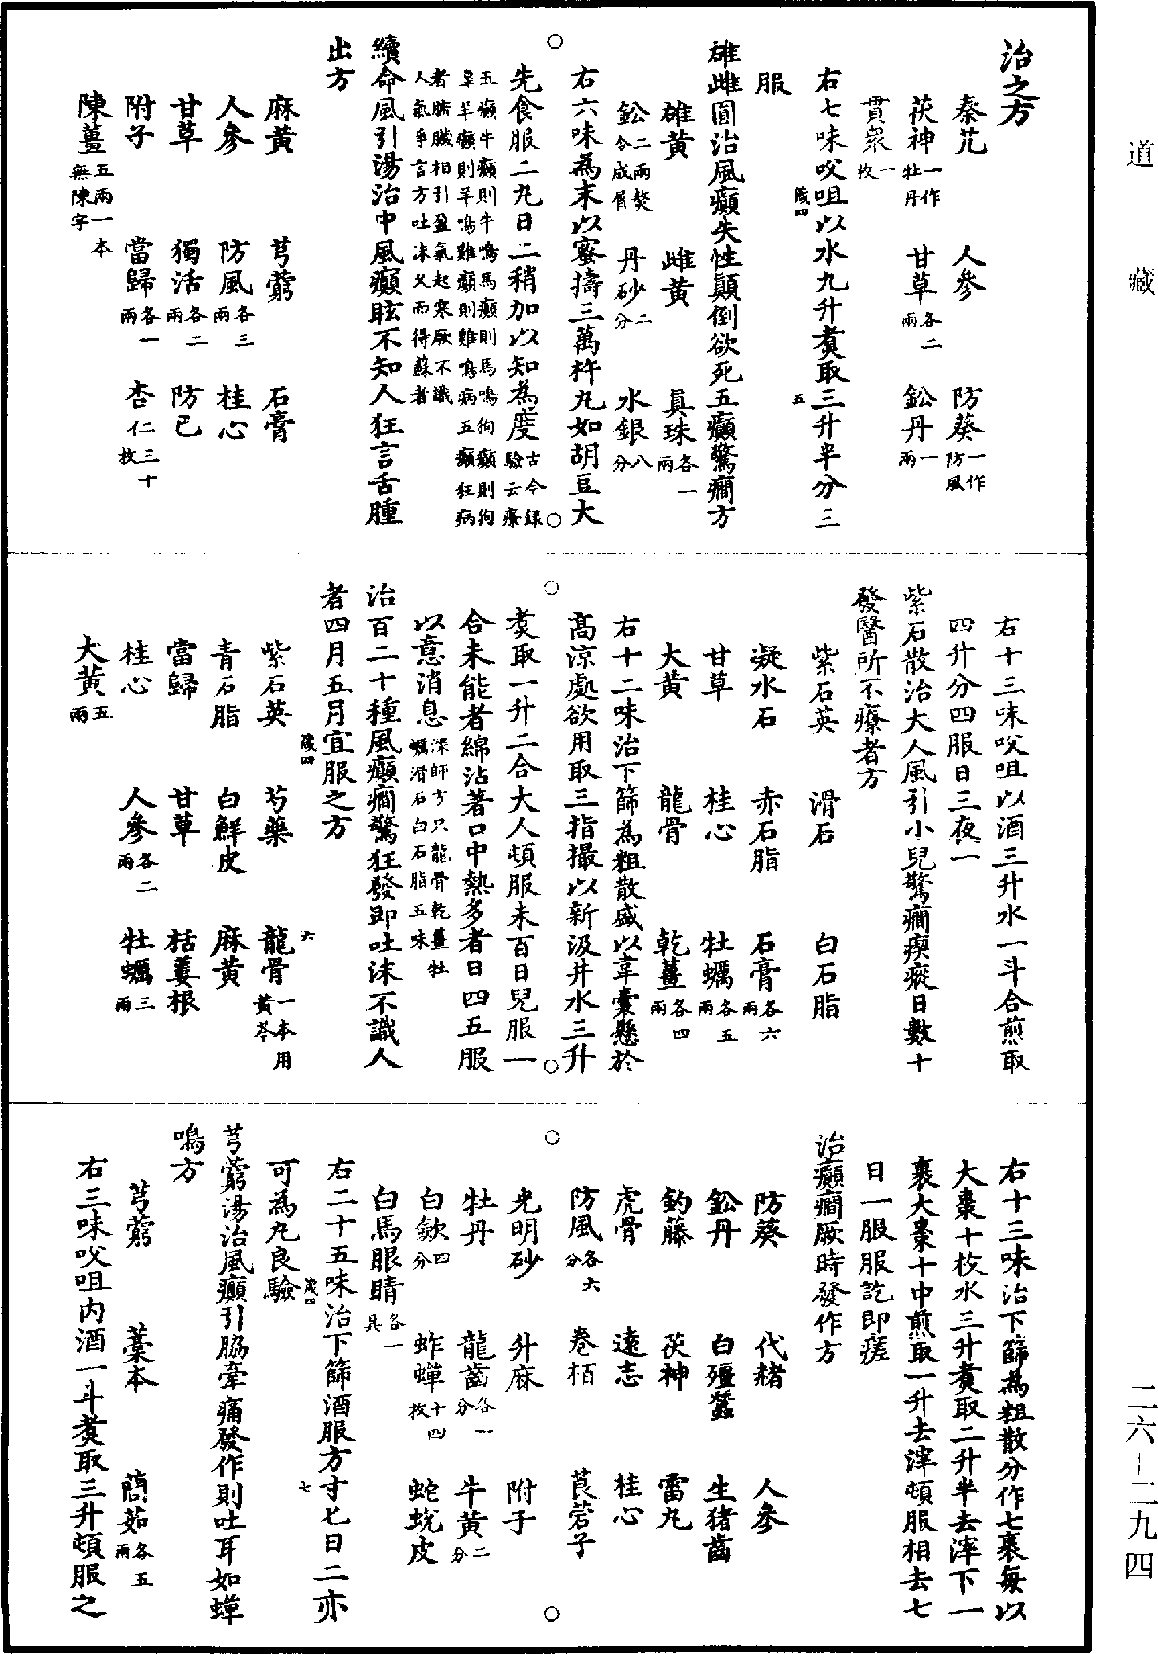 道藏
治之方
秦艽 人參 防葵一作防風
茯神一作牡丹 甘草各二兩 鈆丹一兩
貫衆一枚
右七味㕮咀以水九升煑取三升半分三
服
雄雌圓治風癲失性顛倒欲死五癲驚癇方
雄黃 雌黃 真珠各一兩
鈆二兩熬令成屑 丹砂二分 水銀八分
右六味為末以蜜擣三萬杵丸如胡豆大
先食服二丸日二稍加以知為度古今録驗云療
五癲牛癲則牛鳴馬癲則馬鳴狗癲則狗
鳴羊癲則羊鳴雞癲則雞鳴病五癲狂病
者腑臟相引盈氣起寒厥不識
人氣爭言方吐沫久而得蘇者
續命風引湯治中風癲眩不知人狂言舌腫
出方
麻黃 芎藭 石膏
人參 防風各三兩 桂心
甘草 獨活各二兩 防已
附子 當歸各一兩 杏仁三十枚
陳薑五兩一本無陳字
右十三味㕮咀以酒三升水一斗合煎取
四升分四服日三夜一
紫石散治大人風引小兒驚癇瘈瘲日數十
發醫所不療者方
紫石英 滑石 白石脂
凝水石 赤石脂 石膏各六兩
甘草 桂心 牡蠣各五兩
大黃 龍骨 乾薑各四兩
右十二味治下篩為粗散盛以韋囊懸於
高涼處欲用取三指撮以新汲井水三升
煑取一升二合大人頓服未百日兒服一
合未能者綿沾著口中熱多者日四五服
以意消息深師方只龍骨乾薑牡蠣滑石白石脂五味
治百二十種風癲癇驚狂發即吐沫不識人
者四月五月宜服之方
紫石英 芍藥 龍骨一本用黃芩
青石脂 白鮮皮 麻黃
當歸 甘草 栝蔞根
桂心 人參各二兩 牡蠣三兩
大黃五兩
右十三味治下篩為粗散分作七裹每以
大棗十枚水三升煑取二升半去滓下一
裹大棗十中煎取一升去滓頓服相去七
日一服服訖即瘥
治癲癇厥時發作方
防葵 代赭 人參
鈆丹 白殭蠶 生猪齒
釣藤 茯神 雷丸
虎骨 遠志 桂心
防風各六分 卷栢 莨菪子
光明砂 升麻 附子
牡丹 龍齒各一分 牛黃二分
白歛四分 蚱蟬十四枚 蛇蛻皮
白馬眼睛各一具
右二十五味治下篩酒服方寸匕日二亦
可為丸良驗
芎藭湯治風癲引脇牽痛發作則吐耳如蟬
鳴方
芎藭 藁本 䕡茹各五兩
右三味㕮咀内酒一斗煑取三升頓服之
二六-二九四